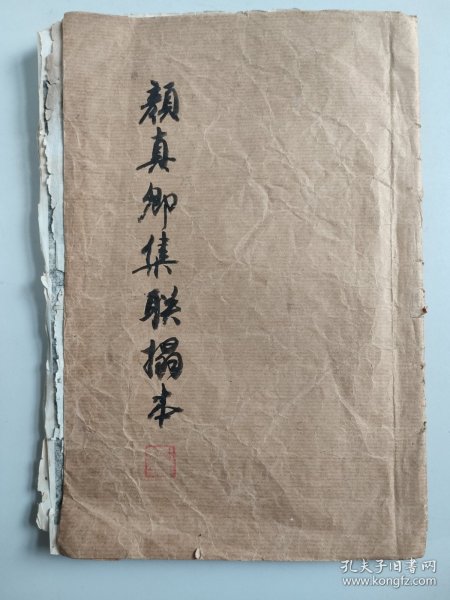 顔真卿集联搨本
孔夫子旧书网
www.kongfz.com